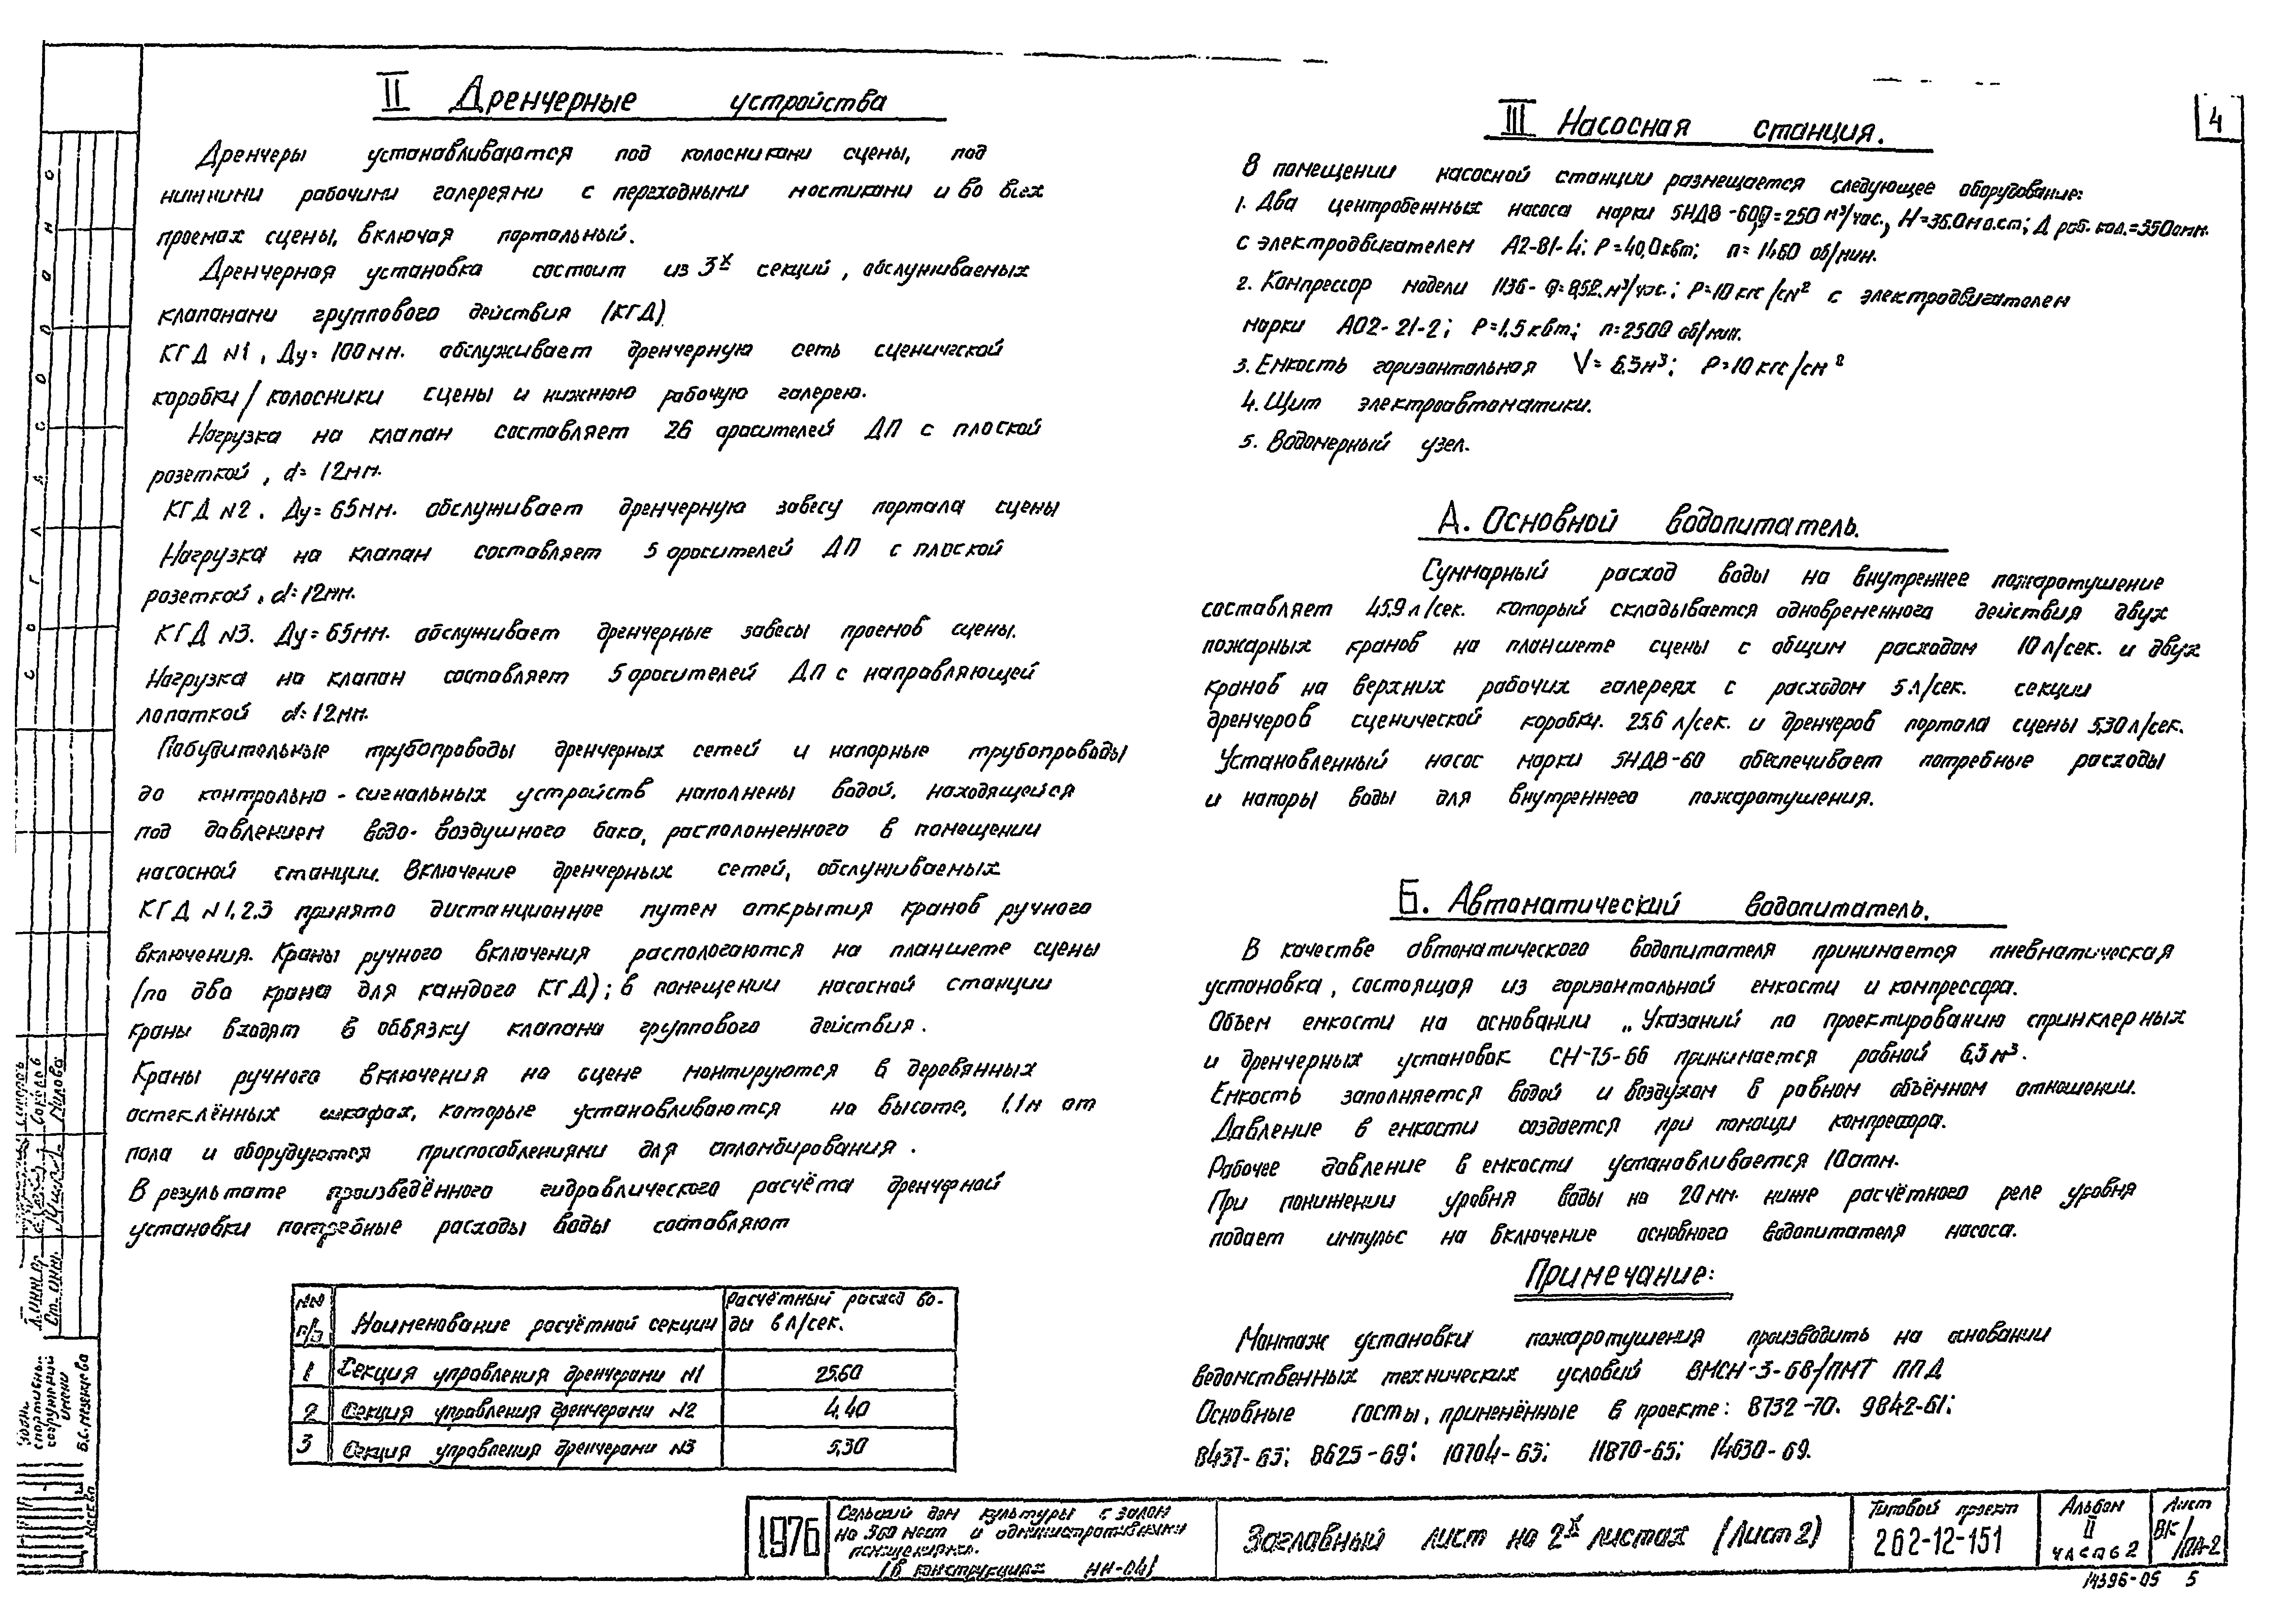 II Дренчерные устройства
Дренчеры устанавливаются под колосниками сцены, под
нижними рабочими галереями с переходными мостиками и во всех
проемах сцены, включая портальный.
Дренчерная установка состоит из 3х секций, обслуживаемых
клапанами группового действия (КГД)
КГД N1, Ду= 100мм. обслуживает дренчерную сеть сценической
коробки/колосники сцены и нижнюю рабочую галерею.
Нагрузка на клапан составляет 26 оросителей ДП с плоской
розеткой, d= 12мм.
КГД N2. Ду= 65мм. обслуживает дренчерную завесу портала сцены
Нагрузка на клапан составляет 5 оросителей ДП с плоской
розеткой, d=12мм.
КГД N3. Ду= 65мм. обслуживает дренчерные завесы проемов сцены.
Нагрузка на клапан составляет 5 оросителей ДП с направляющей
лопаткой d=12мм.
Побудительные трубопроводы дренчерных сетей и напорные трубопроводы
до контрольно-сигнальных устройств наполнены водой, находящейся
под давлением водо-воздушного бака, расположенного в помещении
насосной станции. Включение дренчерных сетей, обслуживаемых
КГД N1,2,3 принято дистанционное путем открытия кранов ручного
включения. Краны ручного включения распологаются на планшете сцены
(по два крана для каждого КГД); в помещении насосной станции
краны входят в обвязку клапана группового действия.
Краны ручного включения на сцене монтируются в деревянных
остеклённых шкафах, которые устанавливаются на высоте, 1,1м от
пола и оборудуются приспособлениями для опломбирования.
В результате произведённого гидравлического расчёта дренчерной
установки потребные расходы воды составляют
NN п/п Наименование расчётной секции Расчётный расход во-
ды в л/сек.
1 Секция управления дренчерами N1 25,60
2 Секция управления дренчерами N2 4,40
3 Секция управления дренчерами N3 5,30
4
III Насосная станция.
В помещении насосной станции размещается следующее оборудование:
1. Два центробежных насоса марки 5НДВ-60,Q=250 м³/час., H=36.0м в.ст; Д раб. кол.=350мм.
с электродвигателем А2-81-4; P=40,0квт; n= 1460 об/мин.
2. Компрессор модели 1136- Q=8,52.м³/час.; P=10 кгс/см² с электродвигателем
марки АО2-21-2; P=1,5 квт; n=2500 об/мин.
3. Емкость горизонтальная V= 6,3м³; P=10 кгс/см²
4. Щит электроавтоматики.
5. Водомерный узел.
А. Основной водопитатель.
Суммарный расход воды на внутреннее пожаротушение
составляет 45,9 л/сек. который складывается одновременного действия двух
пожарных кранов на планшете сцены с общим расходом 10 л/сек. и двух
кранов на верхних рабочих галереях с расходом 5 л/сек. секции
дренчеров сценической коробки. 25,6 л/сек. и дренчеров портала сцены 5,30 л/сек.
Установленный насос марки 5НДВ-60 обеспечивает потребные расходы
и напоры воды для внутреннего пожаротушения.
Б. Автоматический водопитатель.
В качестве автоматического водопитателя принимается пневматическая
установка, состоящая из горизонтальной емкости и компрессора.
Объем емкости на основании „Указаний по проектированию спринклерных
и дренчерных установок СН-75-66 принимается равной 6,3 м³.
Емкость заполняется водой и воздухом в равном объёмном отношении.
Давление в емкости создается при помощи компрессора.
Рабочее давление в емкости устанавливается 10атм.
При понижении уровня воды на 20 мм. ниже расчётного реле уровня
подает импульс на включение основного водопитателя насоса.
Примечание:
Монтаж установки пожаротушения производить на основании
ведомственных технических условий ВМСН-3-68/ПМТ ППД
Основные госты, применённые в проекте: 8732-70. 9842-61;
8437-63; 8625-69; 10704-63; 11870-65; 14630-69.
1976
Сельский дом культуры с залом
на 300 мест и административными
помещениями.
/в конструкциях ИИ-04/
Заглавный лист на 2х листах (Лист 2)
Типовой проект
262-12-151
Альбом
II
часть 2
Лист
ВК/ПА-2
14396-05 5
СОГЛАСОВАНО
Ст. инж.
спортивных
сооружений
имени
Б.С. Мезенцева
Москва